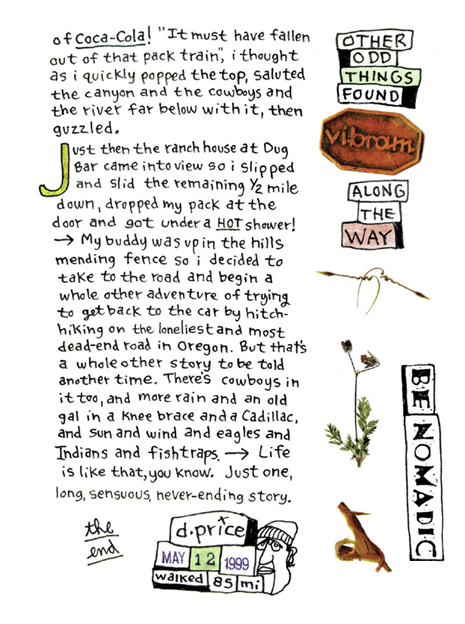 of Coca-Cola! "It must have fallen
out of that pack train", i thought
as i quickly popped the top, saluted
the canyon and the cowboys and
the river far below with it, then
guzzled.
Just then the ranch house at Dug
Bar came into view so i slipped
and slid the remaining ½ mile
down, dropped my pack at the
door and got under a HOT shower!
→ My buddy was up in the hills
mending fence so i decided to
take to the road and begin a
whole other adventure of trying
to get back to the car by hitch-
hiking on the loneliest and most
dead-end road in Oregon. But that's
a whole other story to be told
another time. There's cowboys in
it too, and more rain and an old
gal in a knee brace and a Cadillac,
and sun and wind and eagles and
Indians and fishtraps. → Life
is like that, you know. Just one,
long, sensuous, never-ending story.
the
end
d.price
MAY 12 1999
walked 85 mi
OTHER
ODD
THINGS
FOUND
vibram
ALONG
THE
WAY
BE NOMADIC